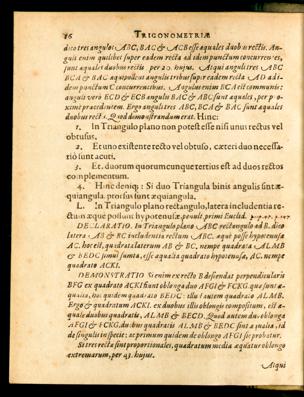 16 TRIGONOMETRIÆ
dico tres angulos ABC, BAC & ACB esse aequales duobus rectis. An-
guli enim quilibet super eadem recta ad idem punctum concurrentes,
sunt aequales duobus rectis per 20. hujus. Atqui anguli tres ABC
BCA & BAC aequipollent angulis tribus super eadem recta AD ad i-
dem punctum C concurrentibus. Angulus enim BCA est communis:
anguli verò ECD & ECB angulis BAC & ABC sunt aequales, per pro-
ximè praecedentem. Ergo anguli tres ABC, BCA & BAC sunt aequales
duobus rectis. Quod demonstrandum erat. Hinc:
1. In Triangulo plano non potest esse nisi unus rectus vel
obtusus.
2. Et uno existente recto vel obtuso, cæteri duo necessa-
riò sunt acuti.
3. Et duorum quorumcunque tertius est ad duos rectos
complementum.
4. Hinc deniq; : Si duo Triangula binis angulis sint æ-
quiangula, prorsus sunt æquiangula.
L. In Triangulo plano rectangulo, latera includentia re-
ctum æque possunt hypotenusæ. penult. primi Euclid.
DECLARATIO. In Triangulo plano ABC rectangulo ad B. dico
latera AB & BC includentia rectum ABC, aequè posse hypotenusa
AC. hoc est, quadrata laterum AB & BC, nempe quadrata ALMB
& BEDC simul sumta, esse aequalia quadrato hypotenusae, AC. nempe
quadrato ACKI.
DEMONSTRATIO Si enim ex recto B descendat perpendicularis
BFG ex quadrato ACKI fiunt oblonga duo AFGI & FCKG. quae sunt æ-
qualia, hoc quidem quadrato BEDC: illud autem quadrato ALMB.
Ergo & quadratum ACKI. ex duobus illis oblongis compositum, est æ-
quale duobus quadratis, ALMB & BECD. Quod autem duo oblonga
AFGI & FCKG. duobus quadratis ALMB & BEDC sint aequalia, id
de singulis inspecie: ac primùm quidem de oblongo AFGI sic probatur.
Si tres rectae sint proportionales, quadratum mediae aequatur oblongo
extremarum, per 43. hujus.
Atqui